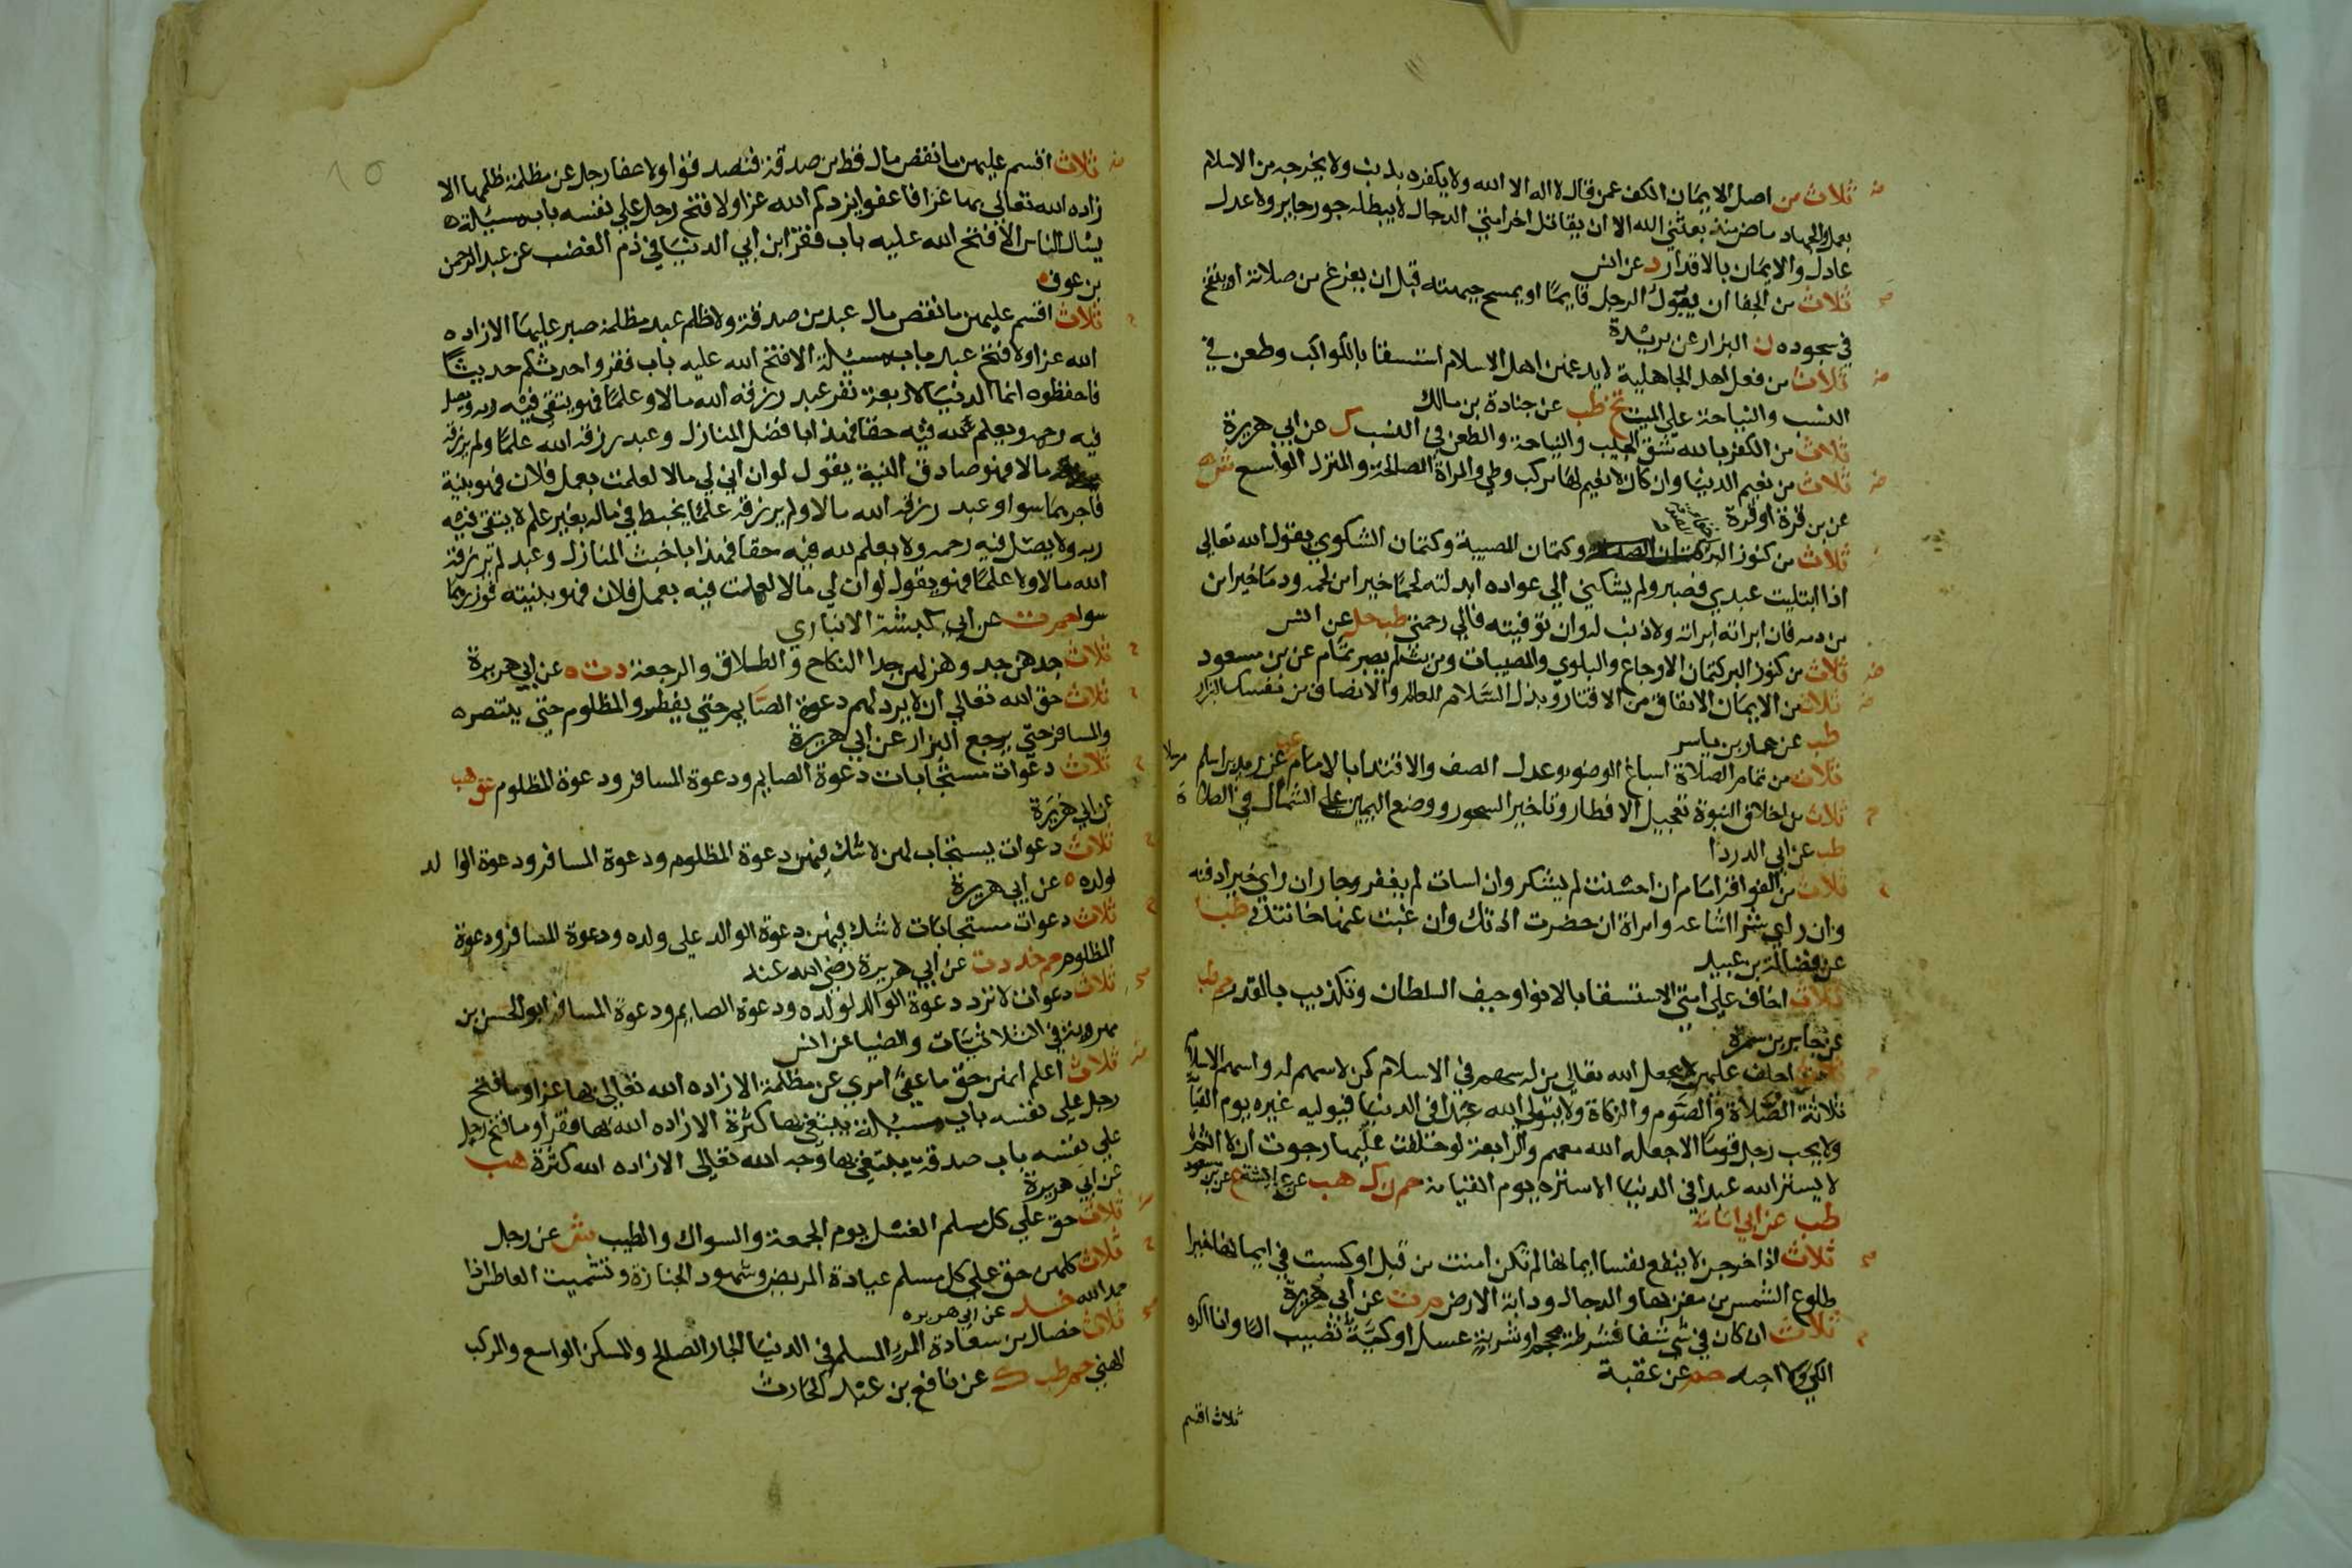 ثلاث من اصل الايمان الكف عمن قال لا اله الا الله ولا يكفره بذنب ولا يخرجه من الاسلام
بعمل والجهاد ماض منذ بعثني الله الا ان يقاتل اخر امتي الدجال لا يبطله جور جاير ولا عدل
عادل والايمان بالاقدار د عن انس
ثلاث من الجفا ان يبول الرجل قايما او يمسح جبهته قبل ان يفرغ من صلاته او ينفخ
في سجوده ن البزار عن بريدة
ثلاث من فعل اهل الجاهلية لا يدعهن اهل الاسلام استسقا بالكواكب وطعن في
النسب والنياحة علي الميت تخ طب عن جنادة بن مالك
ثلاث من الكفر بالله شق الجيب والنياحة والطعن في النسب ك عن ابي هريرة
ثلاث من نعيم الدنيا وان كان لا نعيم لها مركب وطي والمراة الصالحة والمنزل الواسع ش
عن بن قرة او قرة
ثلاث من كنوز البر وكتمان المصيبة وكتمان الشكوي يقول الله تعالي
اذا ابتليت عبدي فصبر ولم يشكني الي عواده ابدلته لحما خيرا من لحمه ودما خيرا من
من دمه فان ابراته ابراته ولا ذنب له وان توفيته فالي رحمتي طب حل عن انس
ثلاث من كنوز البر كتمان الاوجاع والبلوي والمصيبات ومن بث لم يصبر تمام عن بن مسعود
ثلاث من الايمان الانفاق من الاقتار وبذل السلام للعالم والانصاف من نفسك البزار
طب عن عمار بن ياسر
ثلاث من تمام الصلاة اسباغ الوضوء وعدل الصف والاقتدا بالامام عن زيد بن اسلم مرسلا
ثلاث من اخلاق النبوة تعجيل الافطار وتاخير السحور ووضع اليمين علي الشمال في الصلاة
طب عن ابي الدردا
ثلاث من الفواقر امام ان احسنت لم يشكر وان اسات لم يغفر وجار ان راي خيرا دفنه
وان راي شرا اشاعه وامراة ان حضرت اذتك وان غبت عنها خانتك طب
عن فضالة بن عبيد
ثلاث اخاف علي امتي الاستسقا بالانوا وحيف السلطان وتكذيب بالقدر حم طب
عن جابر بن سمرة
ثلاث احلف عليهن لا يجعل الله تعالي من له سهم في الاسلام كمن لا سهم له واسهم الاسلام
ثلاثة الصلاة والصوم والزكاة ولا يتولي الله عبدا في الدنيا فيوليه غيره يوم القيا
ولا يحب رجل قوما الا جعله الله معهم والرابعة لو حلفت عليها رجوت ان لا اثم
لا يستر الله عبدا في الدنيا الا ستره يوم القيامة حم ن ك هب عن عايشة ع عن بن مسعود
طب عن ابي امامة
ثلاث اذا خرجن لا ينفع نفسا ايمانها لم تكن امنت من قبل او كسبت في ايمانها خيرا
طلوع الشمس من مغربها والدجال ودابة الارض م ت عن ابي هريرة
ثلاث ان كان في شي شفا فشرطة محجم او شربة عسل او كية تصيب الما وانا اكره
الكي ولا احبه حم عن عقبة
ثلاث اقسم
ثلاث اقسم عليهن ما نقص مال قط من صدقة فتصدقوا ولا عفا رجل عن مظلمة ظلمها الا
زاده الله تعالي بها عزا فاعفوا يزدكم الله عزا ولا فتح رجل علي نفسه باب مسئلة
يسال الناس الا فتح الله عليه باب فقر ابن ابي الدنيا في ذم الغضب عن عبد الرحمن
بن عوف
ثلاث اقسم عليهن ما نقص مال عبد من صدقة ولا ظلم عبد مظلمة صبر عليها الا زاده
الله عزا ولا فتح عبد باب مسئلة الا فتح الله عليه باب فقر واحدثكم حديثا
فاحفظوه انما الدنيا لاربعة نفر عبد رزقه الله مالا وعلما فهو يتقي فيه ربه ويصل
فيه رحمه ويعلم لله فيه حقا فهذا بافضل المنازل وعبد رزقه الله علما ولم يرزقه
مالا فهو صادق النية يقول لو ان لي مالا لعملت بعمل فلان فهو بنية
فاجرهما سوا وعبد رزقه الله مالا ولم يرزقه علما يخبط في ماله بغير علم لا يتقي فيه
ربه ولا يصل فيه رحمه ولا يعلم لله فيه حقا فهذا باخبث المنازل وعبد لم يرزقه
الله مالا ولا علما فهو يقول لو ان لي مالا لعملت فيه بعمل فلان فهو بنيته فوزرهما
سوا حم ت عن ابي كبشة الانباري
ثلاث جدهن جد وهزلهن جد النكاح والطلاق والرجعة د ت ه عن ابي هريرة
ثلاث حق الله تعالي ان لا يرد لهم دعوة الصايم حتي يفطر والمظلوم حتي ينتصر
والمسافر حتي يرجع البزار عن ابي هريرة
ثلاث دعوات مستجابات دعوة الصايم ودعوة المسافر ودعوة المظلوم عق هب
عن ابي هريرة
ثلاث دعوات يستجاب لهن لا شك فيهن دعوة المظلوم ودعوة المسافر ودعوة الوالد
لولده ه عن ابي هريرة
ثلاث دعوات مستجابات لا شك فيهن دعوة الوالد علي ولده ودعوة المسافر ودعوة
المظلوم حم خد د ت عن ابي هريرة رضي الله عنه
ثلاث دعوات لا ترد دعوة الوالد لولده ودعوة الصايم ودعوة المسافر ابو الحسن بن
مهرويه في الثلاثيات والضيا عن انس
ثلاث اعلم انهن حق ما عفي امري عن مظلمة الا زاده الله تعالي بها عزا وما فتح
رجل علي نفسه باب مسئلة يبتغي بها كثرة الا زاده الله بها فقرا وما فتح رجل
علي نفسه باب صدقة يبتغي بها وجه الله تعالي الا زاده الله كثرة هب
عن ابي هريرة
ثلاث حق علي كل مسلم الغسل يوم الجمعة والسواك والطيب ش عن رجل
ثلاث كلهن حق علي كل مسلم عيادة المريض وشهود الجنازة وتشميت العاطس اذا
حمد الله خد عن ابي هريره
ثلاث خصال من سعادة المرء المسلم في الدنيا الجار الصالح والمسكن الواسع والمركب
الهني حم طب ك عن نافع بن عبد الحارث